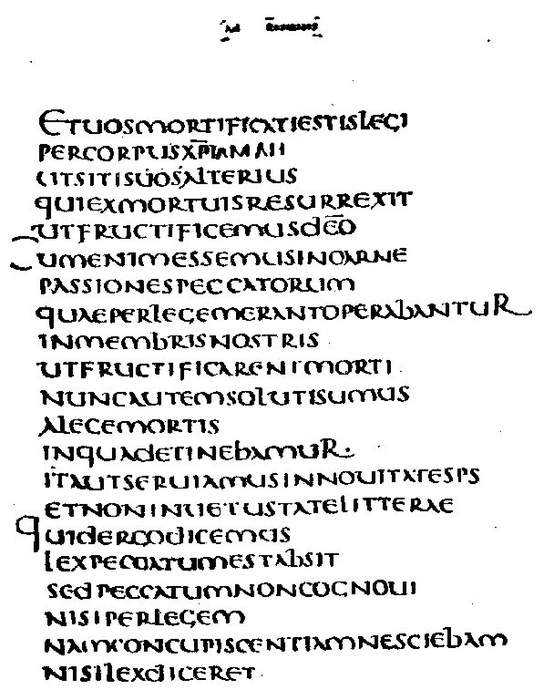 Ad Romanos
ETUOSMORTIFICATIESTISLEGI
PERCORPUSXPI
UTSITISUOSALTERIUS
QUIEXMORTUISRESURREXIT
UTFRUCTIFICEMUSDEO
UMENIMESSEMUSINCARNE
PASSIONESPECCATORUM
QUAEPERLEGEMERANTOPERABANTUR
INMEMBRISNOSTRIS
UTFRUCTIFICARENTMORTI
NUNCAUTEMSOLUTISUMUS
ALEGEMORTIS
INQUADETINEBAMUR·
ITAUTSERUIAMUSINNOUITATESPS
ETNONINUETUSTATELITTERAE
QUIDERGODICEMUS
LEXPECCATUMESTABSIT
SEDPECCATUMNONCOGNOUI
NISIPERLEGEM
NAMCONCUPISCENTIAMNESCIEBAM
NISILEXDICERET